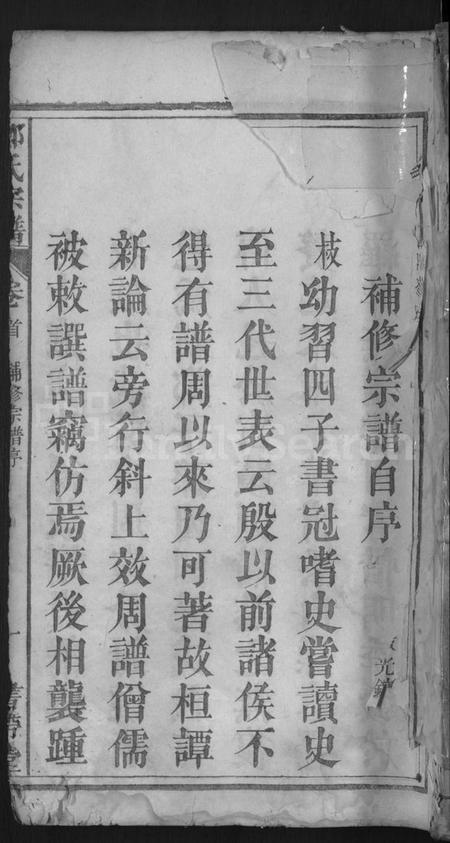 補修宗譜自序
光錦
枝幼習四子書冠嗜史嘗讀史
至三代世表云殷以前諸侯不
得有譜周以來乃可著故桓譚
新論云旁行斜上效周譜僧儒
被敕譔譜竊仿焉厥後相襲踵
氏宗譜
卷首
補修宗譜序
一
FamilySearch